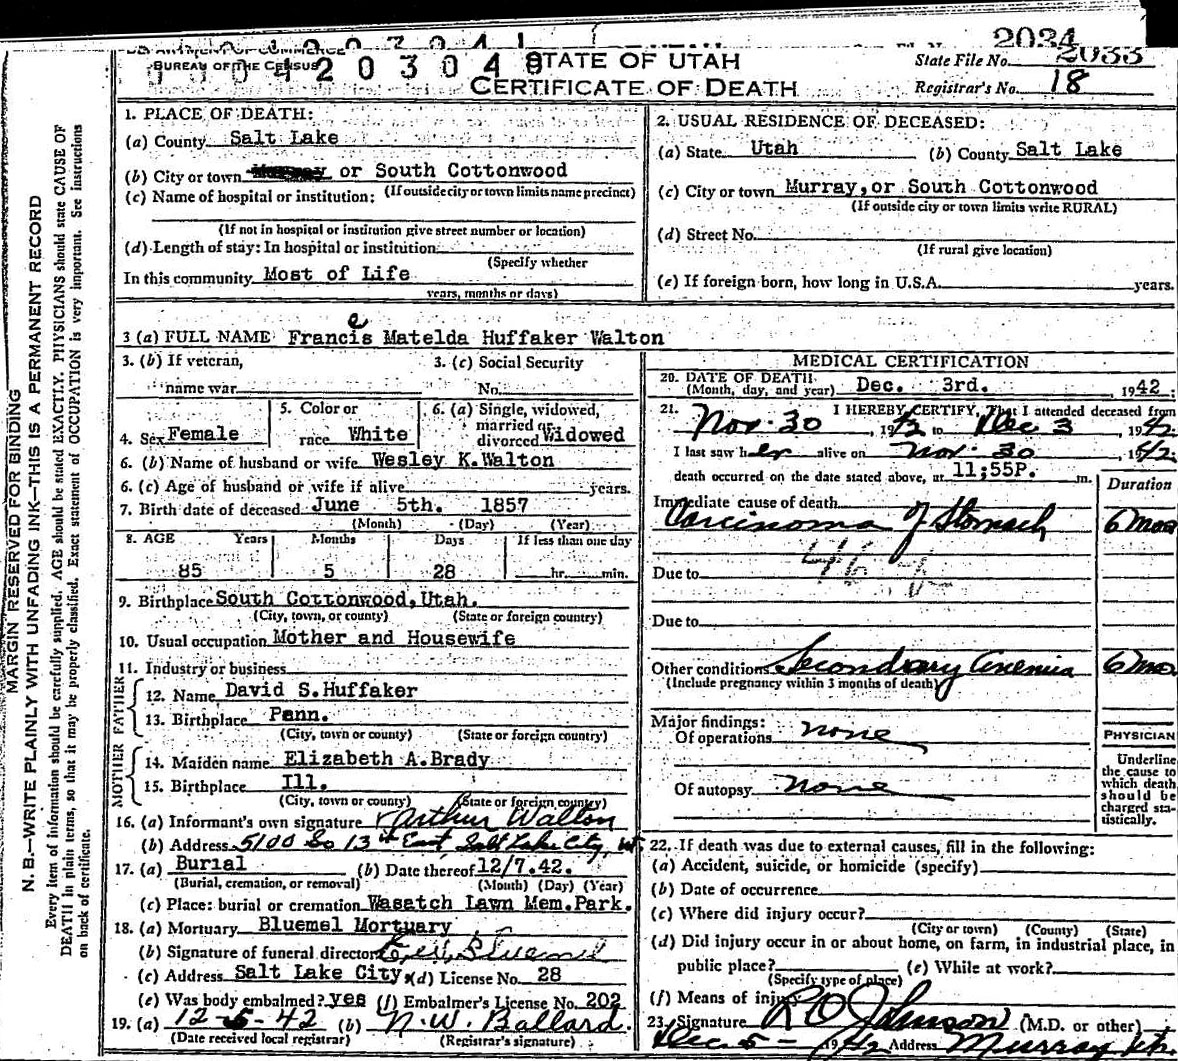 2034
BUREAU OF THE CENSUS STATE OF UTAH State File No. 2033
CERTIFICATE OF DEATH Registrar's No. 18
MARGIN RESERVED FOR BINDING
N. B.—WRITE PLAINLY WITH UNFADING INK—THIS IS A PERMANENT RECORD
Every item of information should be carefully supplied. AGE should be stated EXACTLY. PHYSICIANS should state CAUSE OF
DEATH in plain terms, so that it may be properly classified. Exact statement of OCCUPATION is very important. See instructions
on back of certificate.
1. PLACE OF DEATH:
(a) County Salt Lake
(b) City or town or South Cottonwood
(If outside city or town limits name precinct)
(c) Name of hospital or institution:
(If not in hospital or institution give street number or location)
(d) Length of stay: In hospital or institution
(Specify whether
In this community Most of Life
years, months or days)
2. USUAL RESIDENCE OF DECEASED:
(a) State Utah (b) County Salt Lake
(c) City or town Murray, or South Cottonwood
(If outside city or town limits write RURAL)
(d) Street No.
(If rural give location)
(e) If foreign born, how long in U.S.A. years.
e
3 (a) FULL NAME Francis Matelda Huffaker Walton
3. (b) If veteran, 3. (c) Social Security
name war No.
4. Sex Female 5. Color or race White 6. (a) Single, widowed, married or divorced Widowed
6. (b) Name of husband or wife Wesley K.Walton
6. (c) Age of husband or wife if alive years.
7. Birth date of deceased June 5th. 1857
(Month) (Day) (Year)
8. AGE Years Months Days If less than one day
85 5 28 hr. min.
9. Birthplace South Cottonwood,Utah.
(City, town, or county) (State or foreign country)
10. Usual occupation Mother and Housewife
11. Industry or business
FATHER
12. Name David S.Huffaker
13. Birthplace Penn.
(City, town or county) (State or foreign country)
MOTHER
14. Maiden name Elizabeth A.Brady
15. Birthplace Ill.
(City, town or county) (State or foreign country)
16. (a) Informant's own signature Arthur Walton
(b) Address 5100 So 13th East, Salt Lake City, Ut
17. (a) Burial (b) Date thereof 12/7.42.
(Burial, cremation, or removal) (Month) (Day) (Year)
(c) Place: burial or cremation Wasatch Lawn Mem.Park.
18. (a) Mortuary Bluemel Mortuary
(b) Signature of funeral director Bluemel
(c) Address Salt Lake City, (d) License No. 28
(e) Was body embalmed? yes (f) Embalmer's License No. 202
19. (a) 12-5-42 (b) N.W. Ballard.
(Date received local registrar) (Registrar's signature)
MEDICAL CERTIFICATION
20. DATE OF DEATH
(Month, day, and year) Dec. 3rd. , 1942 :
21. I HEREBY CERTIFY, That I attended deceased from
Nov. 30 , 1942 to Dec 3 , 1942
I last saw her alive on Nov. 30 , 1942
death occurred on the date stated above, at 11;55P. m.
Duration
Immediate cause of death
Carcinoma of Stomach 6 mos
46
Due to
Due to
Other conditions Secondary Anemia 6 mos.
(Include pregnancy within 3 months of death)
Major findings:
Of operations none
Of autopsy none
PHYSICIAN
Underline
the cause to
which death
should be
charged sta-
tistically.
22. If death was due to external causes, fill in the following:
(a) Accident, suicide, or homicide (specify)
(b) Date of occurrence
(c) Where did injury occur?
(City or town) (County) (State)
(d) Did injury occur in or about home, on farm, in industrial place, in
public place? (e) While at work?
(Specify type of place)
(f) Means of injury
23. Signature R O Johnson (M.D. or other)
Dec 5 - 1942 Address Murray Ut.